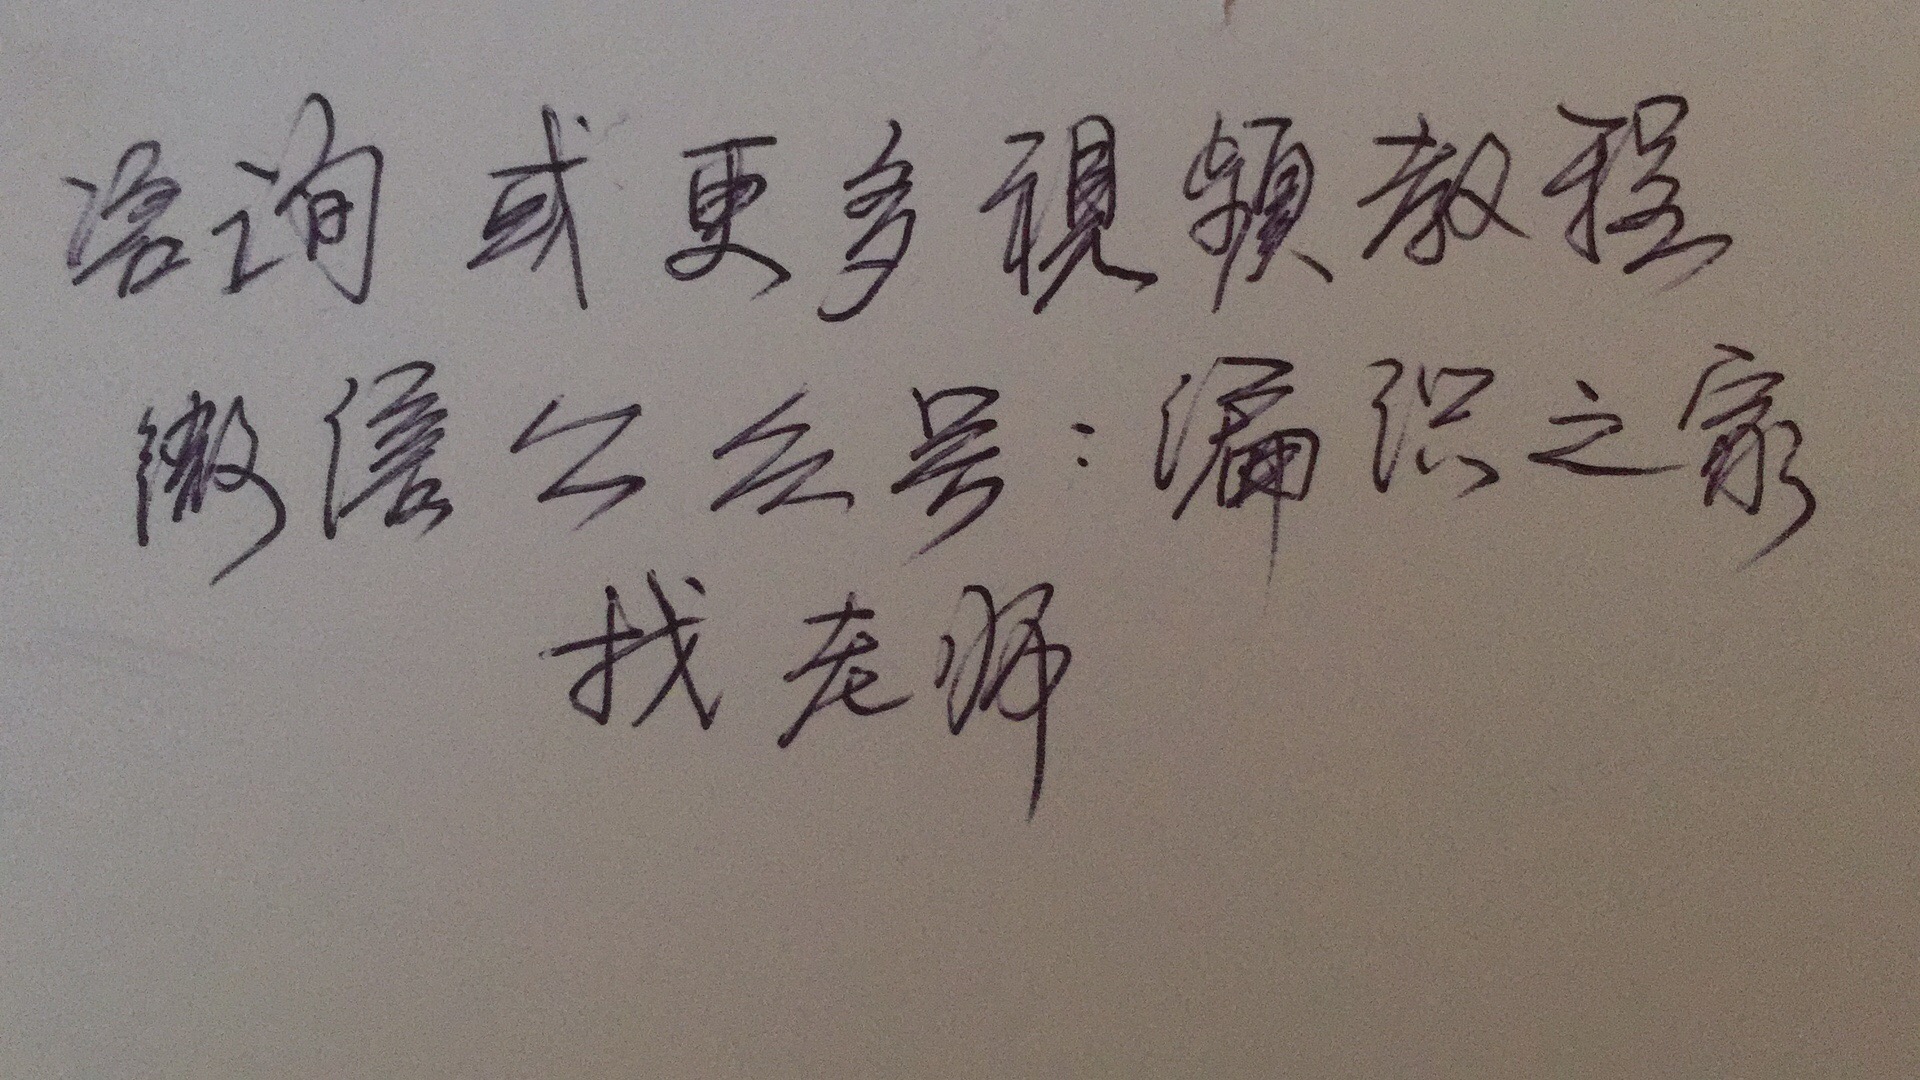 咨询或更多視頻教程
微信公众号：漏识之家
找老师